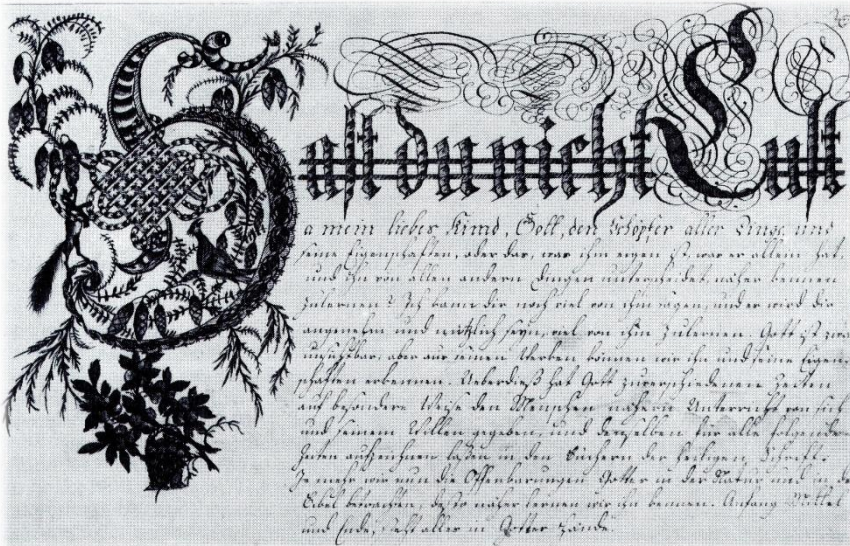 Hast du nicht Lust
a mein liebes Kind, Gott, den Schöpfer aller Dinge, und
seine Eigenschaften, oder das, was ihm eigen ist, was er allein hat,
und ihn von allen andern Dingen unterscheidet, näher kennen
zulernen? Ich kann dir noch viel von ihm sagen, und es wird dir
angenehm und nützlich seyn, viel von ihm zulernen. Gott ist zwar
unsichtbar, aber aus seinen Werken können wir ihn und seine Eigen
schaften erkennen. Ueberdieß hat Gott zuverschiedenen Zeiten
auf besondere Weise den Menschen nähern Unterricht von sich
und seinem Willen gegeben, und denselben für alle folgende
Zeiten aufzeichnen laßen in den Büchern der heiligen Schrift.
Je mehr wir nun die Offenbarungen Gottes in der Natur und in der
Bibel betrachten, desto näher lernen wir ihn kennen. Anfang Mittel
und Ende, steht alles in Gottes Hände.